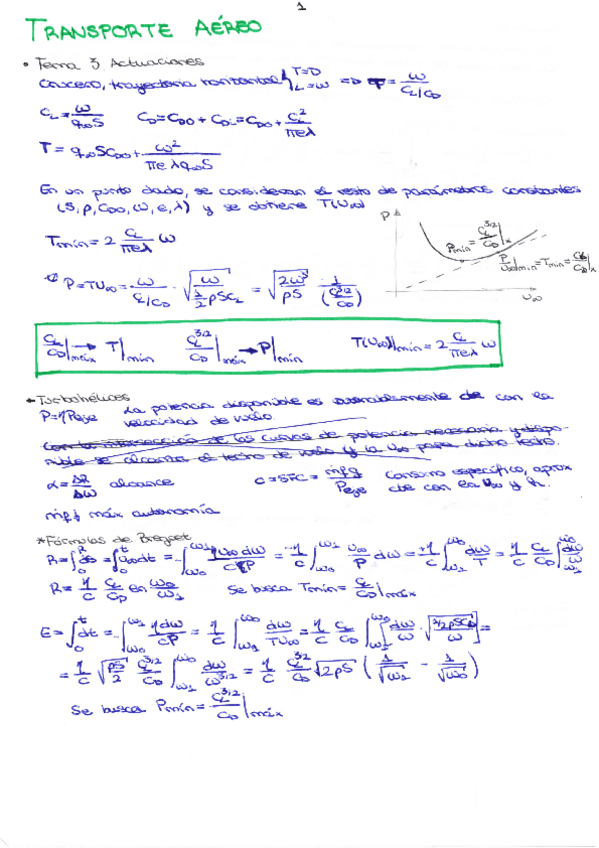 1
TRANSPORTE AÉREO
• Tema 3 Actuaciones
Crucero, trayectoria horizontal { T=D L=ω => T = ω/(CL/CD)
CL = ω/(q∞S) CD = CD0 + CDi = CD0 + CL²/(πeλ)
T = q∞SCD0 + ω²/(πeλq∞S)
En un punto dado, se consideran el resto de parámetros constantes
(S, ρ, CD0, ω, e, λ) y se obtiene T(U∞)
P
Pmín = CL^3/2/CD|x
P/U∞|mín = Tmín = CL/CD|x
U∞
Tmín = 2 CL/(πeλ) ω
P = TU∞ = ω/(CL/CD) · √(ω/(½ρSCL)) = √(2ω³/(ρS)) · 1/(CL^3/2/CD)
CL/CD|máx → T|mín CL^3/2/CD|máx → P|mín T(U∞)|mín = 2 CL/(πeλ) ω
Turbohélices
P=ηPeje La potencia disponible es cte con la
velocidad de vuelo
Con la intersección de las curvas de potencia necesaria y dispo-
nible se alcanza el techo de vuelo y la U∞ para dicho techo.
α = ΔR/Δω alcance c = SFC = ṁf g/Peje Consumo específico, aprox
cte con la U∞ y h.
ṁf máx autonomía
*Fórmulas de Breguet
R = ∫₀ᴿ ds = ∫₀ᵗ U∞dt = -∫ω0^ω1 ηU∞dω/(cP) = -η/c ∫ω0^ω1 U∞/P dω = +η/c ∫ω1^ω0 dω/T = η/c CL/CD ∫ω1^ω0 dω/ω
R = η/c CL/CD ln ω0/ω1 Se busca Tmín = CL/CD|máx
E = ∫₀ᵗ dt = -∫ω0^ω1 ηdω/(cP) = η/c ∫ω1^ω0 dω/(TU∞) = η/c CL/CD ∫ω1^ω0 dω/ω · √(½ρSCL/ω) =
= η/c √(ρS/2) CL^3/2/CD ∫ω1^ω0 dω/ω^3/2 = η/c CL^3/2/CD √(2ρS) (1/√ω1 - 1/√ω0)
Se busca Pmín = CL^3/2/CD|máx